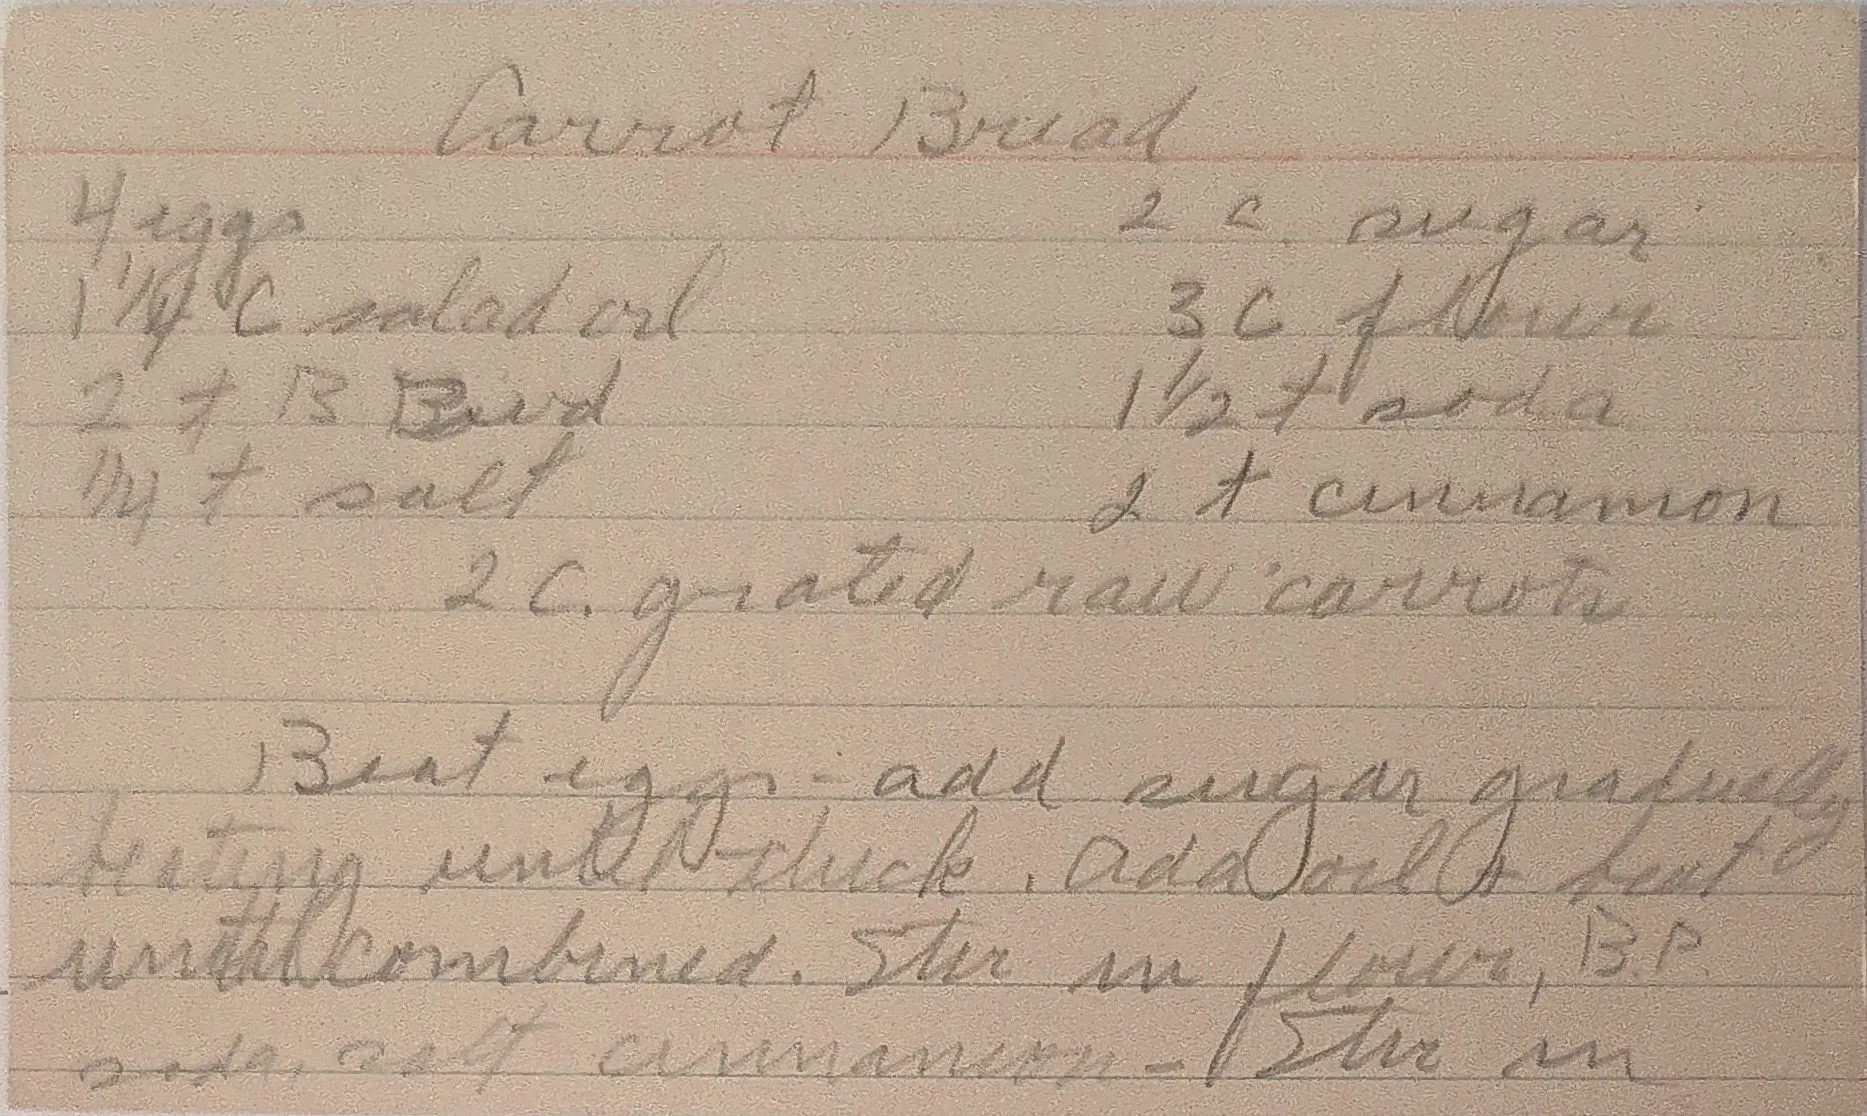 Carrot Bread
4 eggs 2 c. sugar
1 1/4 C salad oil 3 C flour
2 t B 1 1/2 t soda
1/4 t salt 2 t cinnamon
2 C. grated raw carrots
Beat eggs - add sugar gradually
beating until thick. Add oil & beat
until combined. Stir in flour, B.P.
soda, salt cinnamon - Stir in